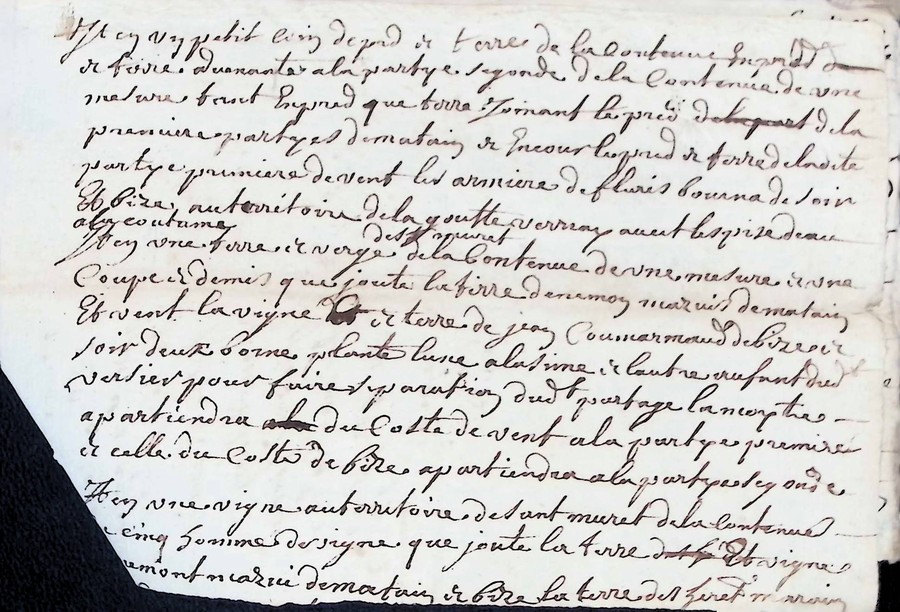 Item un petit coin de pred et terre de la Contenue En pred de
et terre advenante a la partye segonde de la Contenue de une
mesure tant En pred que terre Joinant le pred de la part de la
premiere partyes de matain et Encour le pred et terre de ladite
partye premiere de vent les armiere de fluris bourna de soir
Et bize au territoire de la goutte verray avect les prise deau
a la coutume
Item une terre et verge de la Contenue de une mesure et une
des st muret
Coupe et demis que joute la terre de nemon mazuis de matain
Et vent la vigne et terre de jean Coumarmaud de bize et
soir deux borne plante lune a la sime et lautre au fant dud
versier pour faire separation dudt partage la moytie
apartiendra a la du Coste de vent a la partye premire
et celle du Coste de bize apartiendra a la partye segonde
Item une vigne au territoire de sant muret de la Contenue
cinq homme de vigne que joute la terre Et vigne
mont mazui de matain et bize la terre des